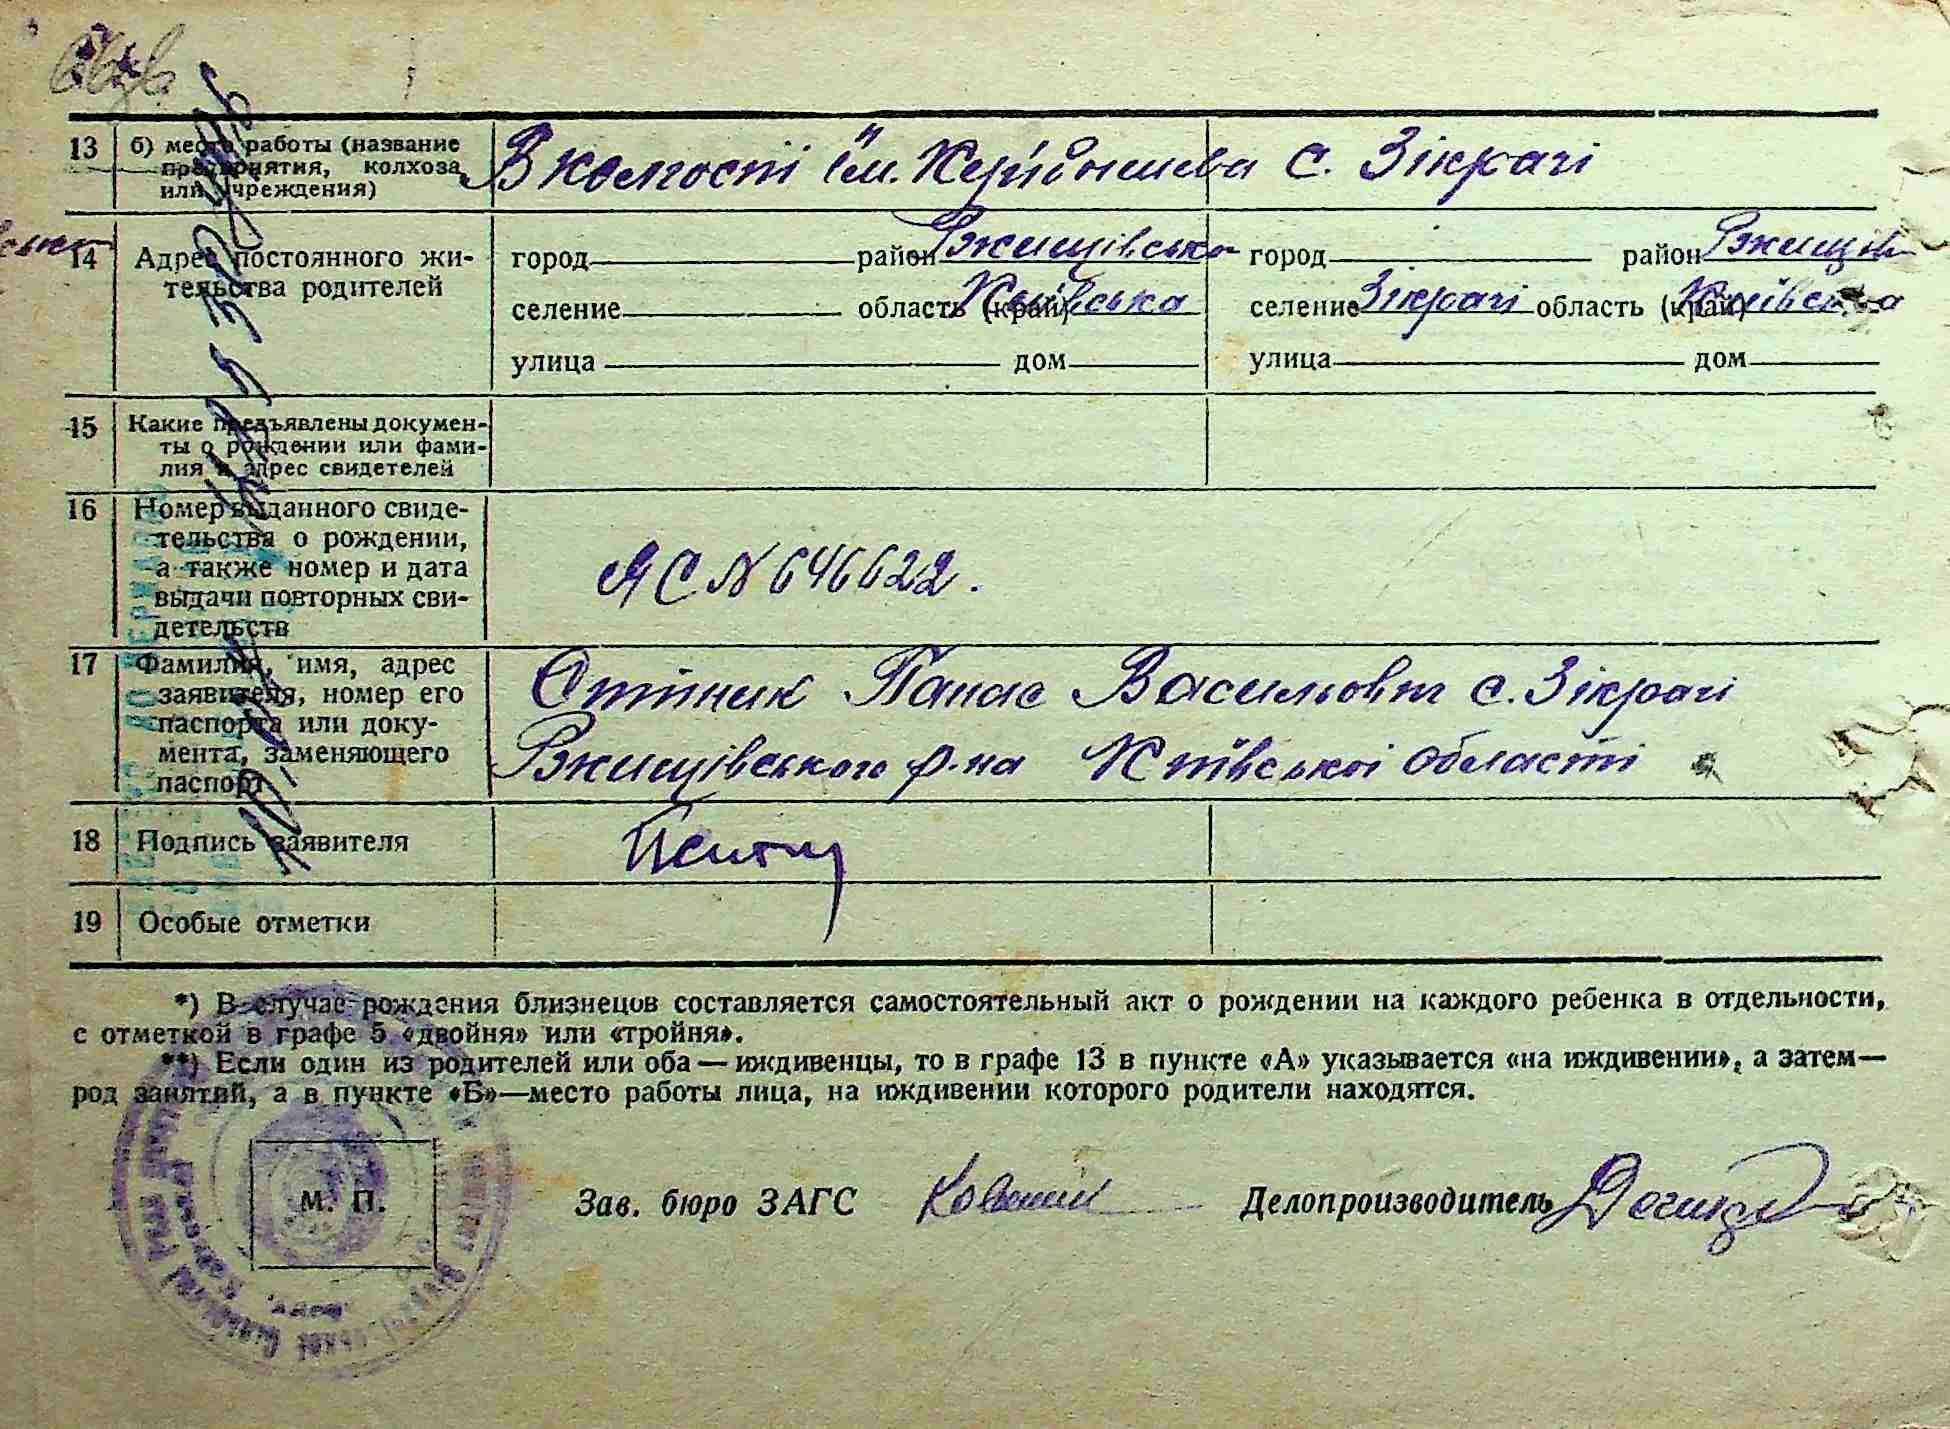 13 б) место работы (название
предприятия, колхоза
или учреждения)
В колгоспі ім. с. Зікрачі
14 Адрес постоянного жи-
тельства родителей
город район Ржищівська
селение область (край) Київська
улица дом
город район Ржищів
селение Зікрачі область (край) Київська
улица дом
15 Какие предъявлены докумен-
ты о рождении или фами-
лия и адрес свидетелей
16 Номер выданного свиде-
тельства о рождении,
а также номер и дата
выдачи повторных сви-
детельств
ЯС N 646622.
17 Фамилия, имя, адрес
заявителя, номер его
паспорта или доку-
мента, заменяющего
паспорт
Панас Васильович с. Зікрачі
Ржищівського р-на Київської області
18 Подпись заявителя
19 Особые отметки
*) В случае рождения близнецов составляется самостоятельный акт о рождении на каждого ребенка в отдельности,
с отметкой в графе 5 «двойня» или «тройня».
**) Если один из родителей или оба — иждивенцы, то в графе 13 в пункте «А» указывается «на иждивении», а затем —
род занятий, а в пункте «Б» — место работы лица, на иждивении которого родители находятся.
М. П.
Зав. бюро ЗАГС
Делопроизводитель